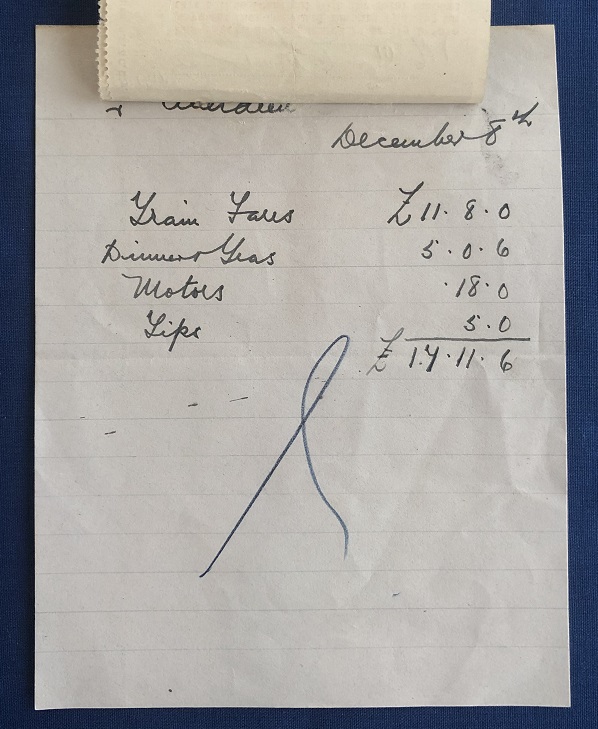 Aberdeen
December 8th
Train Fares £11.8.0
Dinner + Teas 5.0.6
Motors .18.0
Tips 5.0
£17.11.6